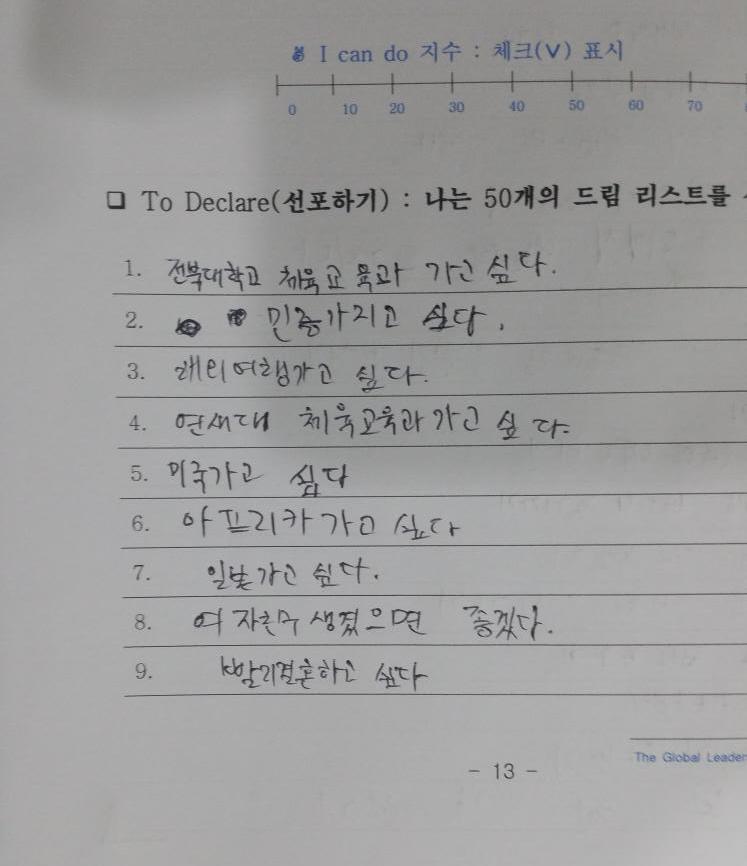 I can do 지수 : 체크(V) 표시
0 10 20 30 40 50 60 70
□ To Declare(선포하기) : 나는 50개의 드림 리스트를
1. 전북대학교 체육교육과 가고 싶다.
2. 민증가지고 싶다.
3. 해외여행가고 싶다.
4. 연세대 체육교육과가고 싶다.
5. 미국가고 싶다
6. 아프리카가고 싶다
7. 일본가고 싶다.
8. 여자친구 생겼으면 좋겠다.
9. 빨리결혼하고 싶다
- 13 -
The Global Leader